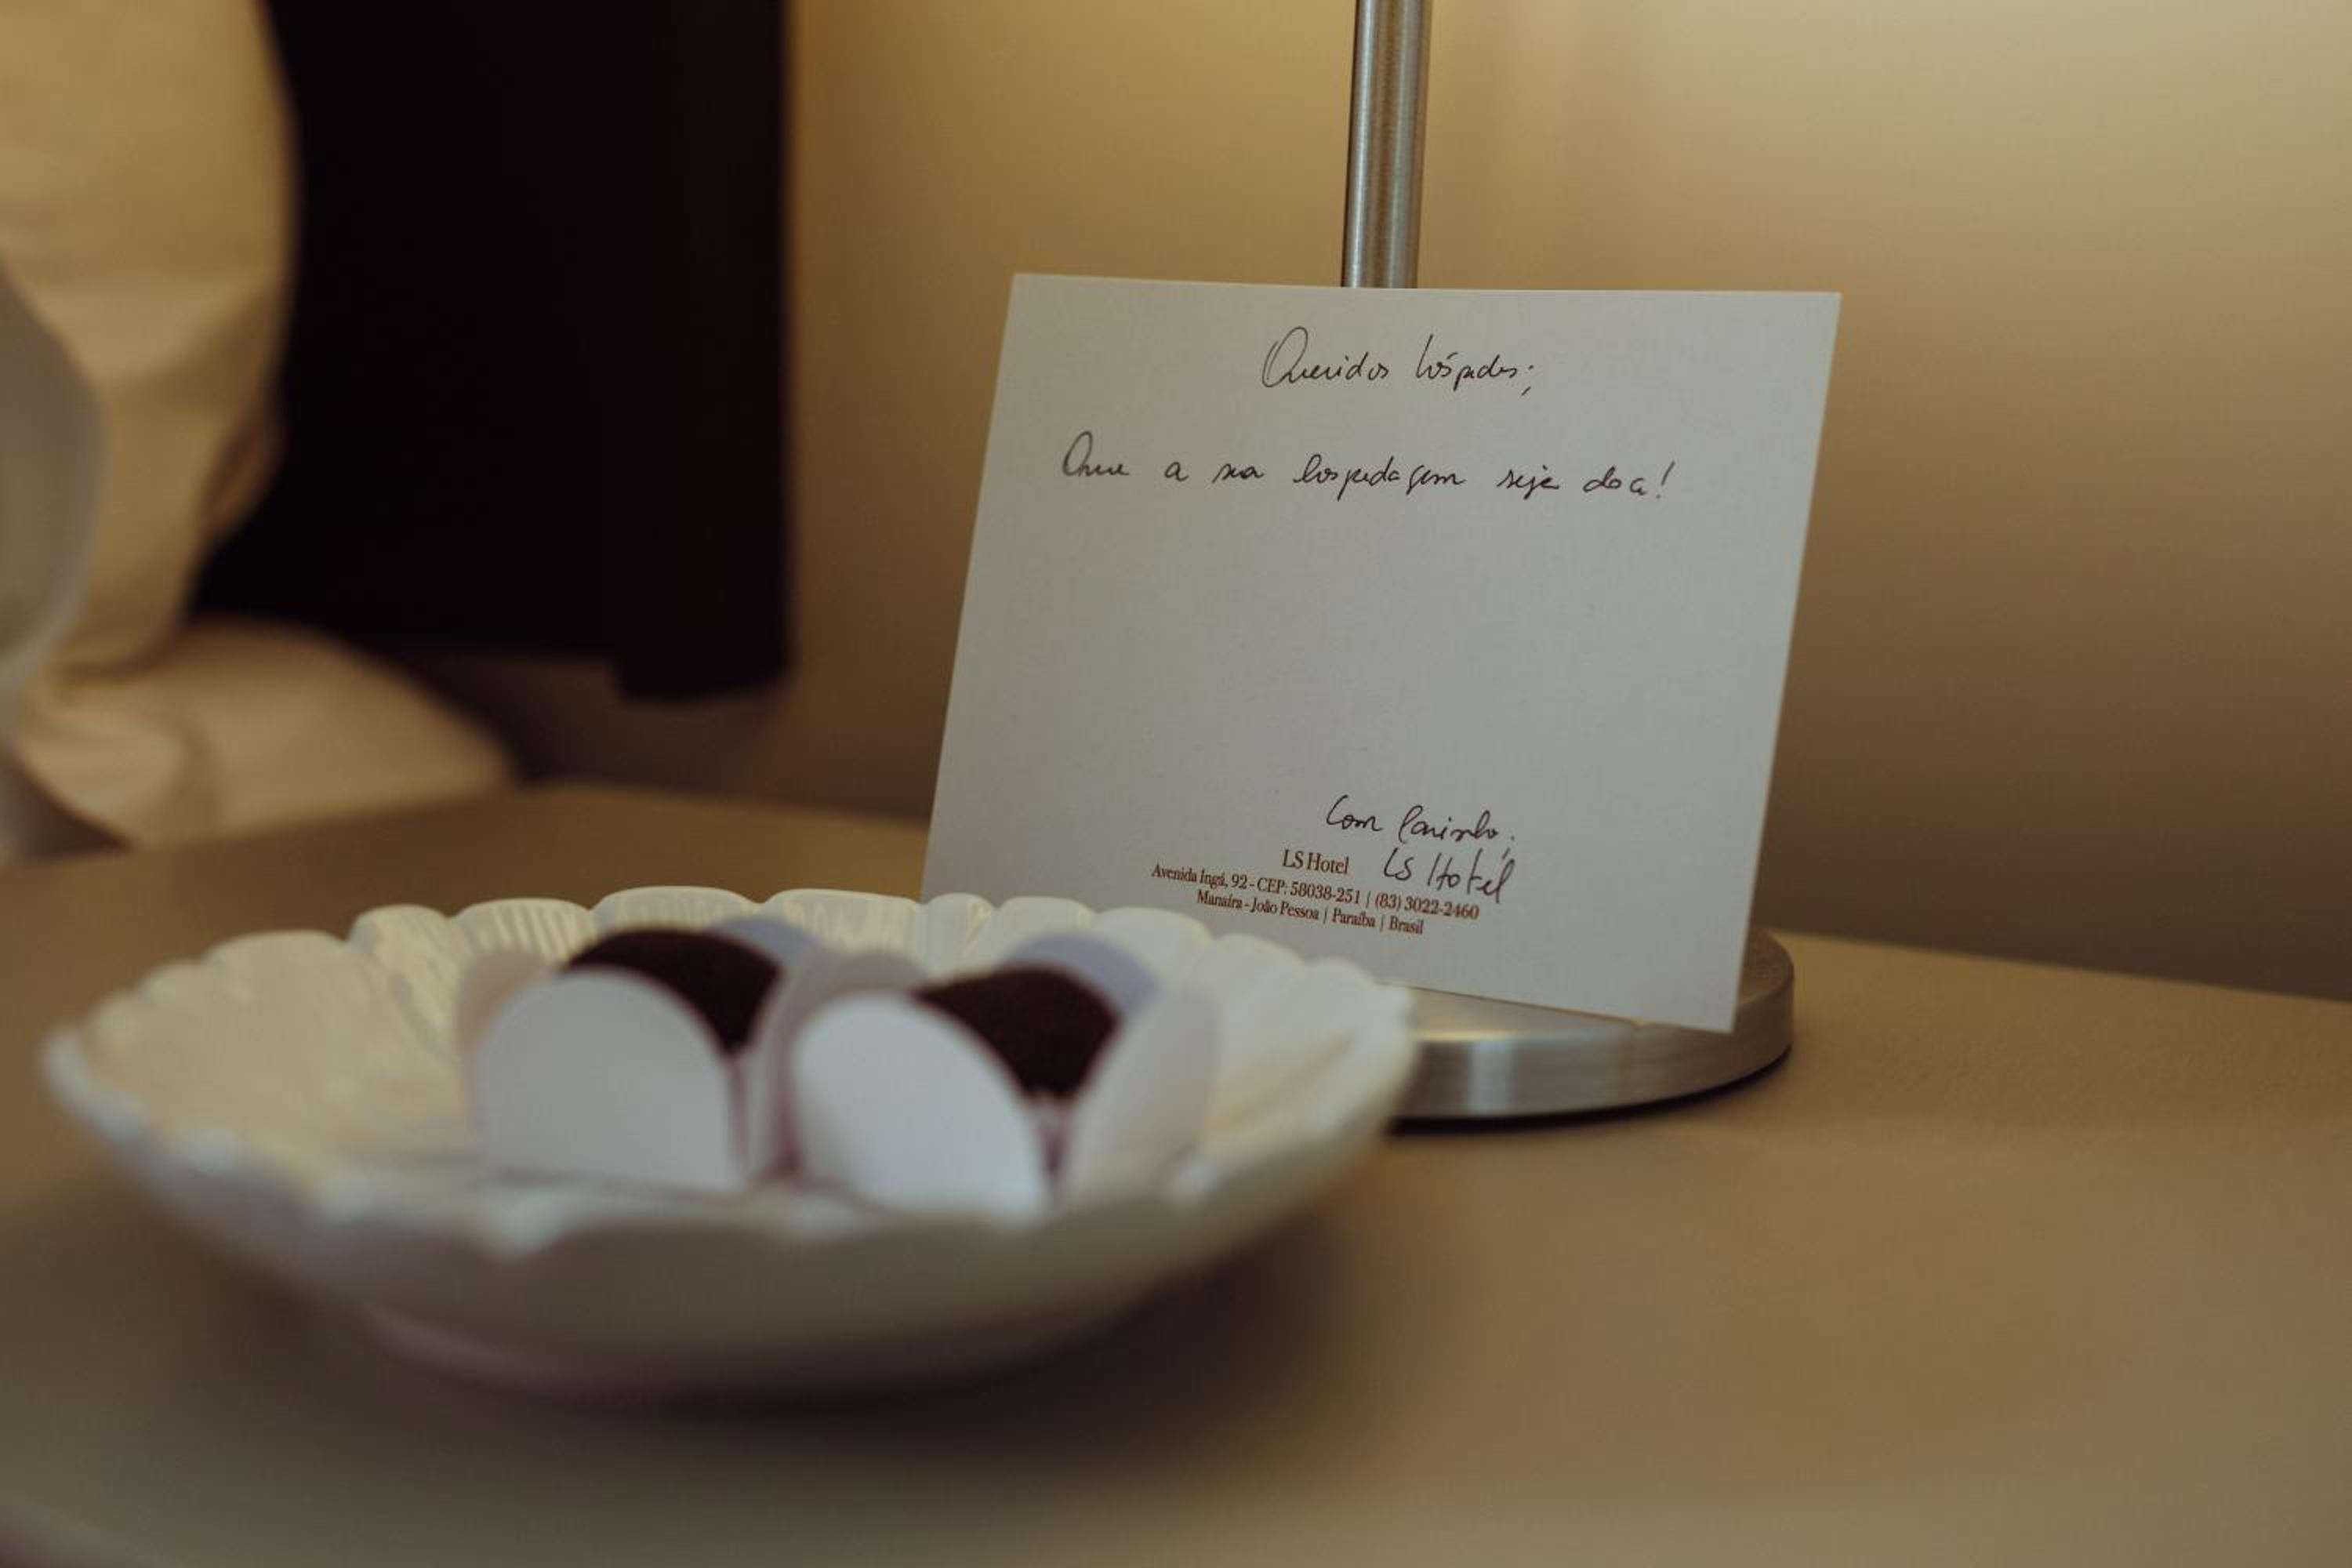 Queridos hóspedes;
Que a sua hospedagem seja doce!
Com Carinho,
LS Hotel LS Hotel
Avenida Ingá, 92 - CEP: 58038-251 | (83) 3022-2460
Manaíra - João Pessoa | Paraíba | Brasil